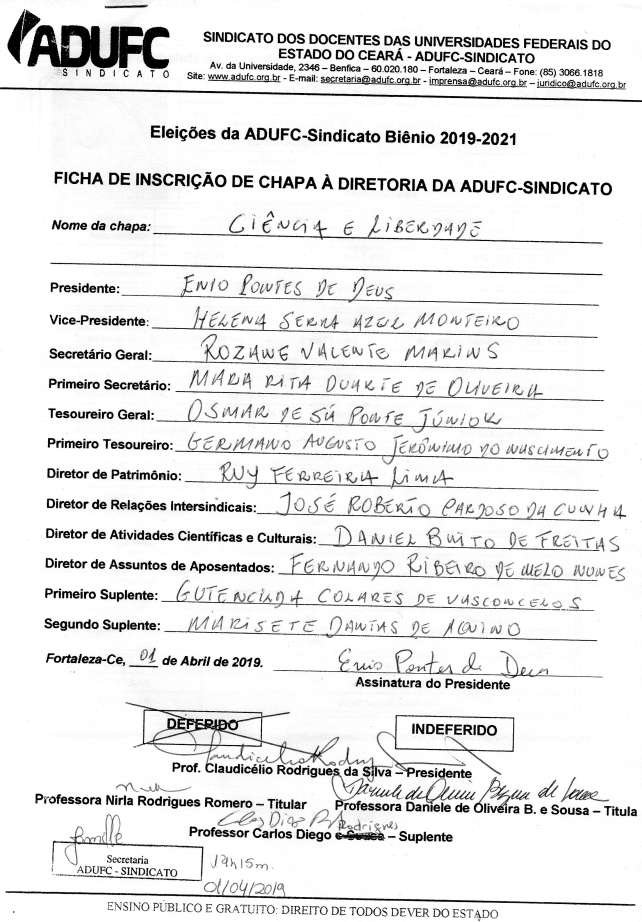 ADUFC
SINDICATO
SINDICATO DOS DOCENTES DAS UNIVERSIDADES FEDERAIS DO
ESTADO DO CEARÁ - ADUFC-SINDICATO
Av. da Universidade, 2346 – Benfica – 60.020.180 – Fortaleza – Ceará – Fone: (85) 3066.1818
Site: www.adufc.org.br - E-mail: secretaria@adufc.org.br - imprensa@adufc.org.br – juridico@adufc.org.br
Eleições da ADUFC-Sindicato Biênio 2019-2021
FICHA DE INSCRIÇÃO DE CHAPA À DIRETORIA DA ADUFC-SINDICATO
Nome da chapa: CIÊNCIA E LIBERDADE
Presidente: ENIO PONTES DE DEUS
Vice-Presidente: HELENA SERRA AZUL MONTEIRO
Secretário Geral: ROZANE VALENTE MARINS
Primeiro Secretário: MARA RITA DUARTE DE OLIVEIRA
Tesoureiro Geral: OSMAR DE SÁ PONTE JÚNIOR
Primeiro Tesoureiro: GERMANO AUGUSTO JERÔNIMO DO NASCIMENTO
Diretor de Patrimônio: RUY FERREIRA LIMA
Diretor de Relações Intersindicais: JOSÉ ROBERTO CARDOSO DA CUNHA
Diretor de Atividades Científicas e Culturais: DANIEL BRITO DE FREITAS
Diretor de Assuntos de Aposentados: FERNANDO RIBEIRO DE MELO NUNES
Primeiro Suplente: GUTENCILDA COLARES DE VASCONCELOS
Segundo Suplente: MARISETE DANTAS DE AQUINO
Fortaleza-Ce, 01 de Abril de 2019. Enio Pontes de Deus
Assinatura do Presidente
DEFERIDO INDEFERIDO
Prof. Claudicélio Rodrigues da Silva – Presidente
Professora Nirla Rodrigues Romero – Titular Professora Daniele de Oliveira B. e Sousa – Titula
Rodrigues
Professor Carlos Diego e Souza – Suplente
Secretaria
ADUFC - SINDICATO
19h15m.
01/04/2019
ENSINO PÚBLICO E GRATUITO: DIREITO DE TODOS DEVER DO ESTADO